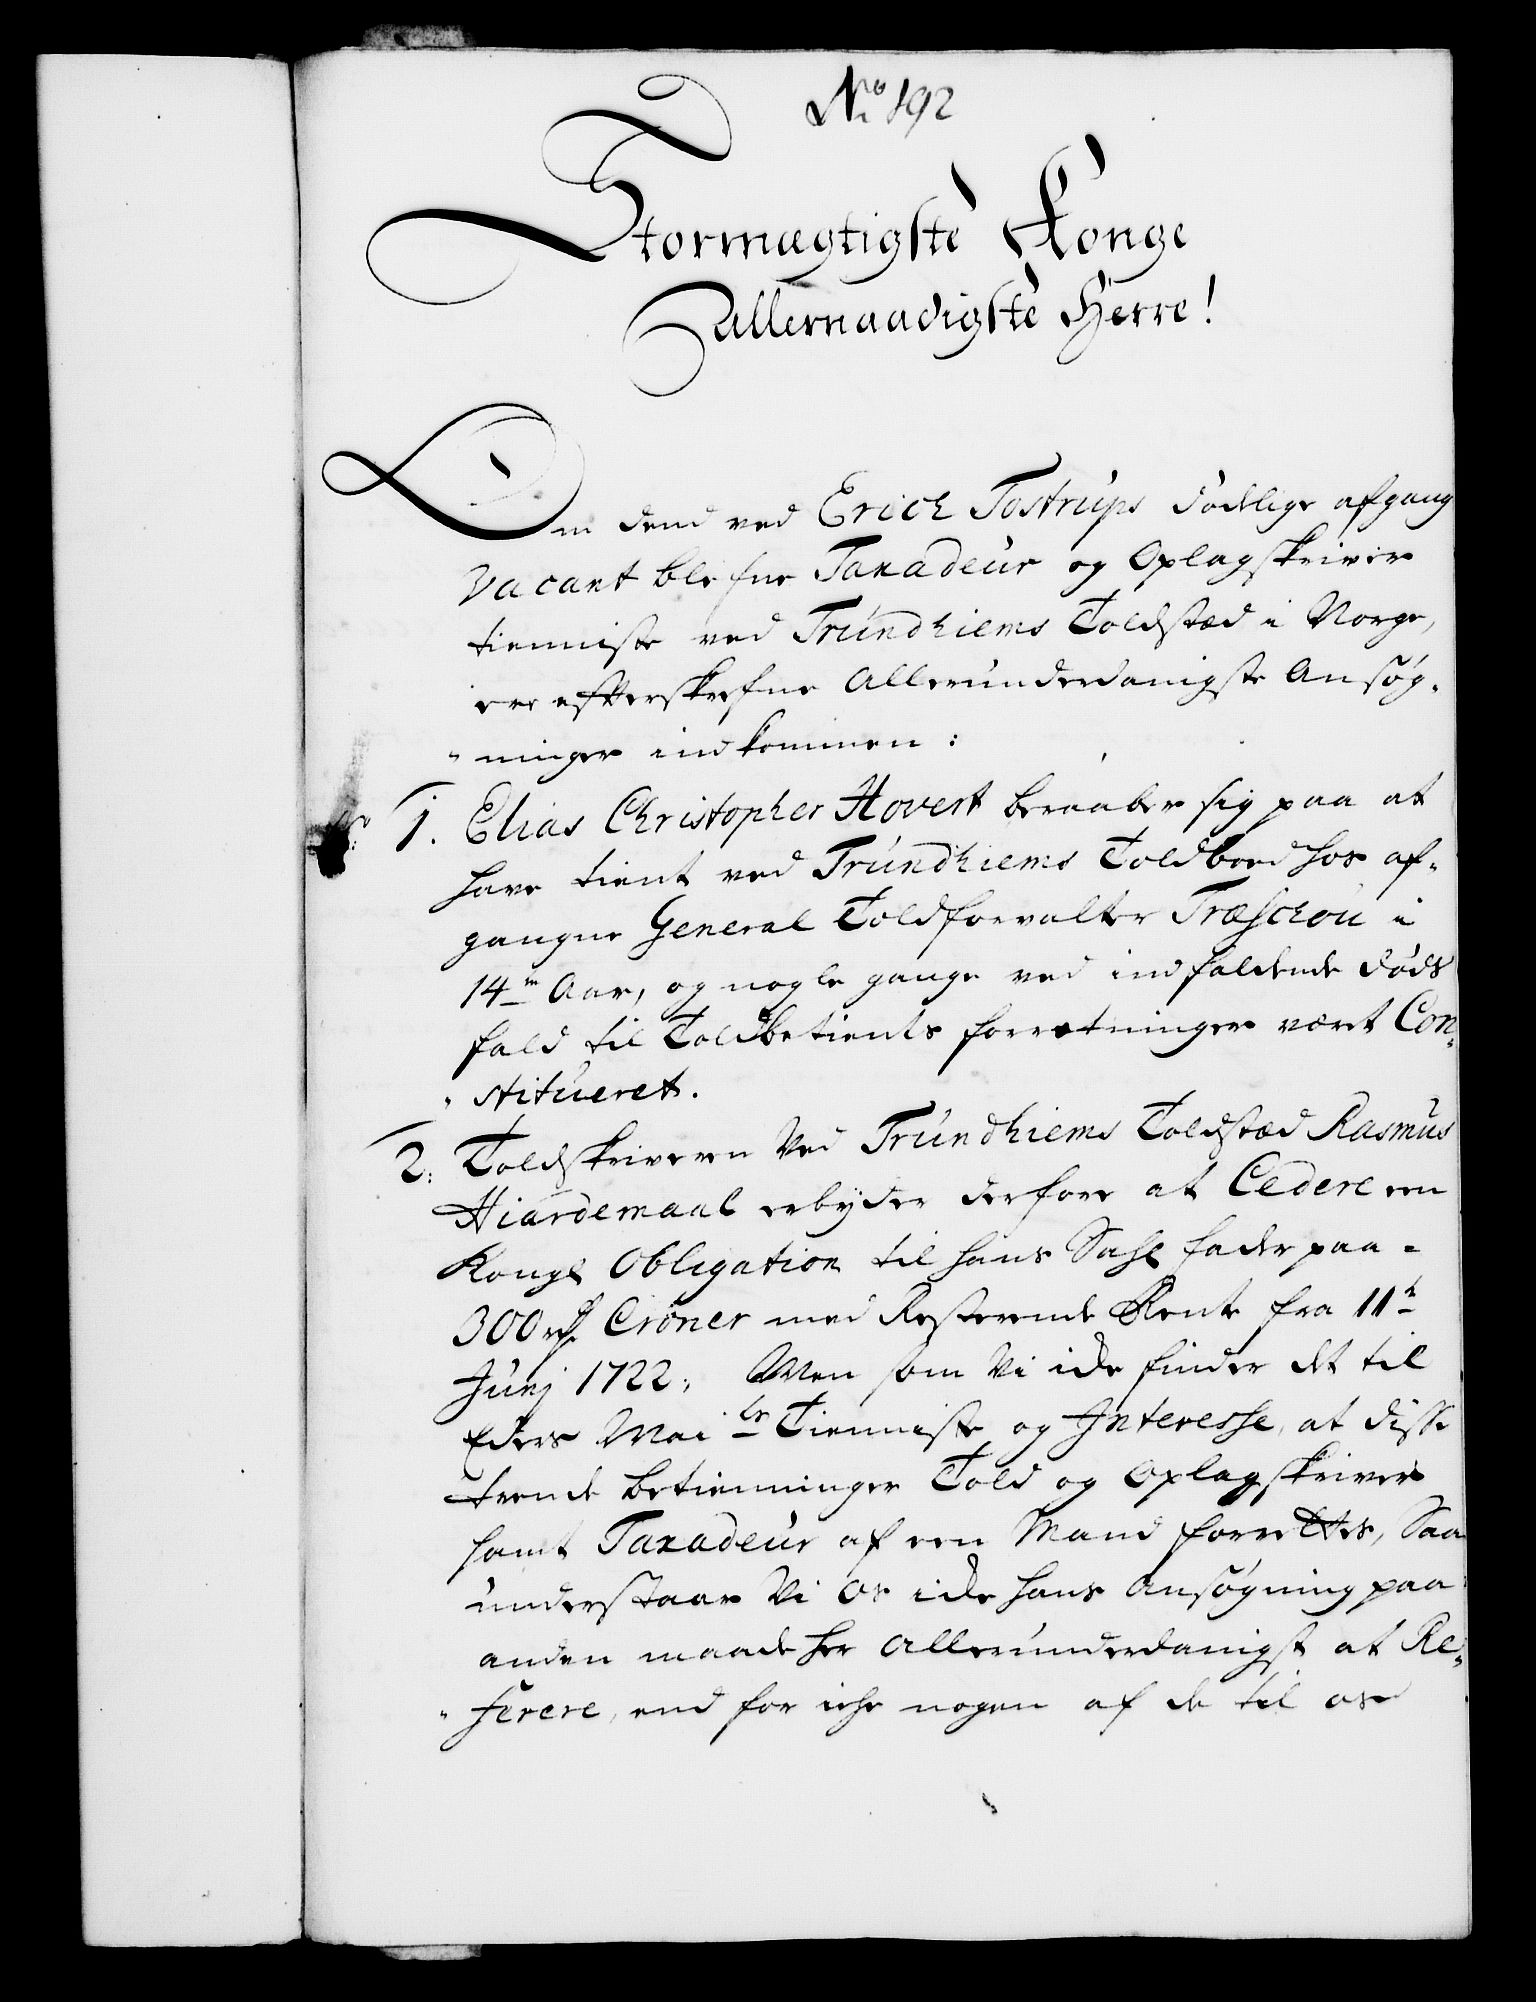 No 192
Stormægtigste Konge
allernaadigste Herre!
Om dend ved Erich Tostrups dødlige afgang
vacant blefne Taxadeur og Oplagskriver
tienniste ved Trundhiems Toldstæd i Norge,
ere efterskrefne Allerunderdanigste Ansøg-
ninger indkommen:
1. Elias Christopher Hovert beraaber sig paa at
have tient ved Trundhiems Toldboed hos af-
gangne General Toldforvalter Træschou i
14 Aar, og nogle gange ved indfaldende døds
fald til Toldbetients forretninger været Con-
stitueret.
2. Toldskriveren Ved Trundhiems Toldstæd Rasmus
Hiardemaal erbyder derfore at Cedere een
Kongl Obligation til hans Sahl fader paa
300 rdr Croner med Resterende Rente fra 11te
Junj 1722, Men som Vi icke finder det til
Eders Maits Tienniste og Interesse, at disse
trende betienninger Told og Oplagskriver
samt Taxadeur af een Mand forrettes, Saa
understaar Vi Os icke hans Ansøgning paa
anden maade her allerunderdanigst at Re-
ferere, end for ichr nogen af de til os